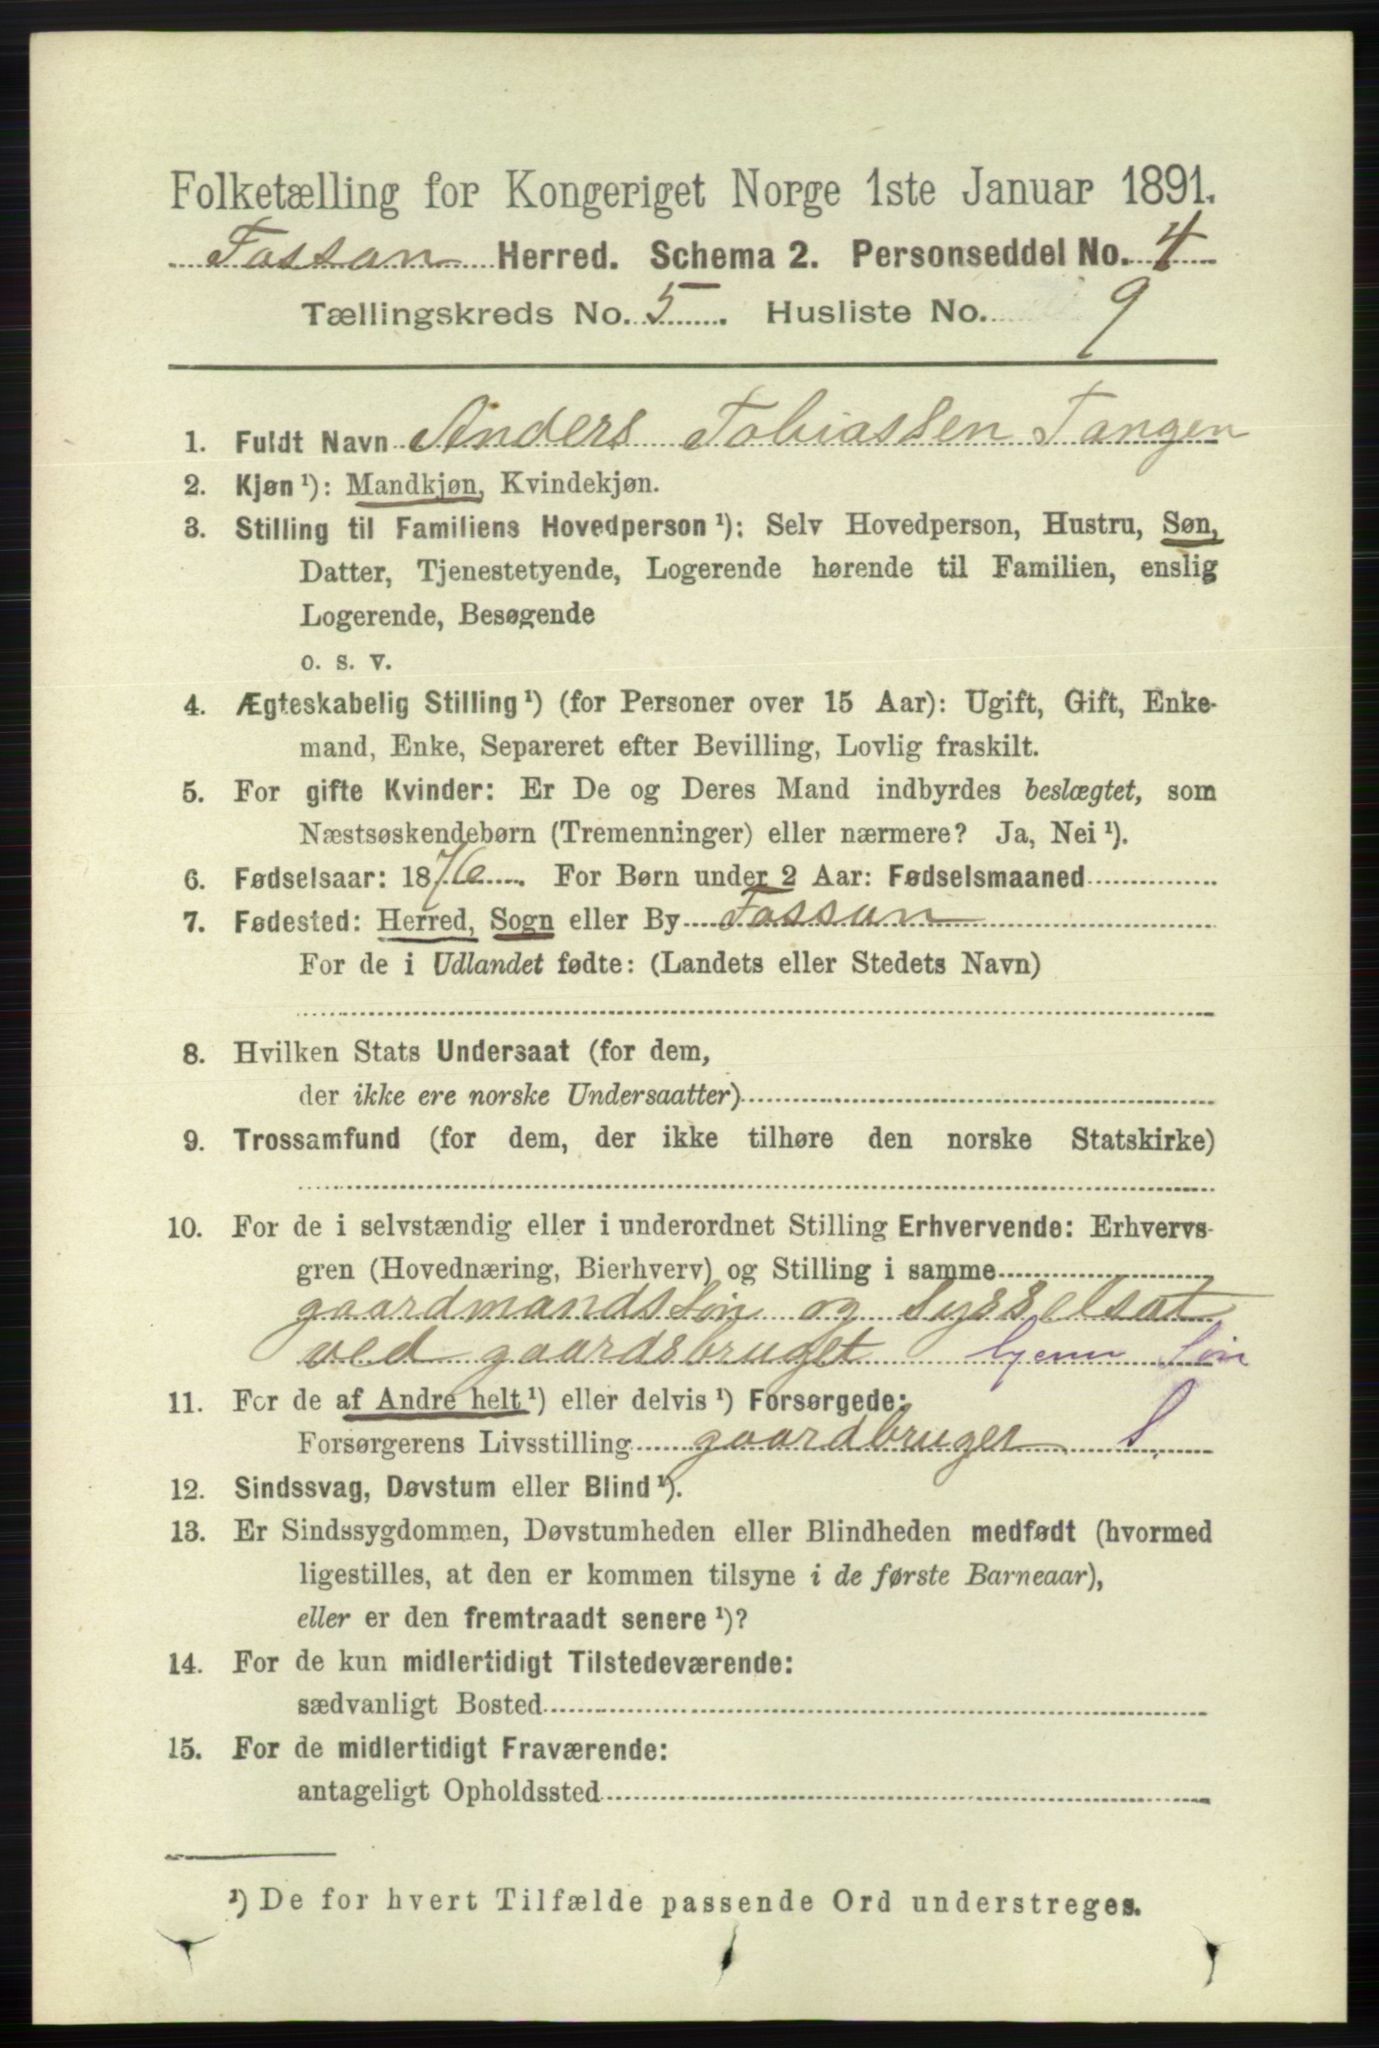 Folketælling for Kongeriget Norge 1ste Januar 1891.
Fossan Herred. Schema 2. Personseddel No. 4
Tællingskreds No. 5. Husliste No. 9
1. Fuldt Navn Anders Tobiassen Tangen
2. Kjøn¹): Mandkjøn, Kvindekjøn.
3. Stilling til Familiens Hovedperson¹): Selv Hovedperson, Hustru, Søn,
Datter, Tjenestetyende, Logerende hørende til Familien, enslig
Logerende, Besøgende
o. s. v.
4. Ægteskabelig Stilling¹) (for Personer over 15 Aar): Ugift, Gift, Enke-
mand, Enke, Separeret efter Bevilling, Lovlig fraskilt.
5. For gifte Kvinder: Er De og Deres Mand indbyrdes beslægtet, som
Næstsøskendebørn (Tremenninger) eller nærmere? Ja, Nei¹).
6. Fødselsaar: 1876. For Børn under 2 Aar: Fødselsmaaned
7. Fødested: Herred, Sogn eller By Fossan
For de i Udlandet fødte: (Landets eller Stedets Navn)
8. Hvilken Stats Undersaat (for dem,
der ikke ere norske Undersaatter)
9. Trossamfund (for dem, der ikke tilhøre den norske Statskirke)
10. For de i selvstændig eller i underordnet Stilling Erhvervende: Erhvervs-
gren (Hovednæring, Bierhverv) og Stilling i samme
gaardmandsSøn og Sysselsat
ved gaardsbruget hjemv Søn
11. For de af Andre helt¹) eller delvis¹) Forsørgede:
Forsørgerens Livsstilling gaardbruger S.
12. Sindssvag, Døvstum eller Blind¹).
13. Er Sindssygdommen, Døvstumheden eller Blindheden medfødt (hvormed
ligestilles, at den er kommen tilsyne i de første Barneaar),
eller er den fremtraadt senere¹)?
14. For de kun midlertidigt Tilstedeværende:
sædvanligt Bosted
15. For de midlertidigt Fraværende:
antageligt Opholdssted
¹) De for hvert Tilfælde passende Ord understreges.